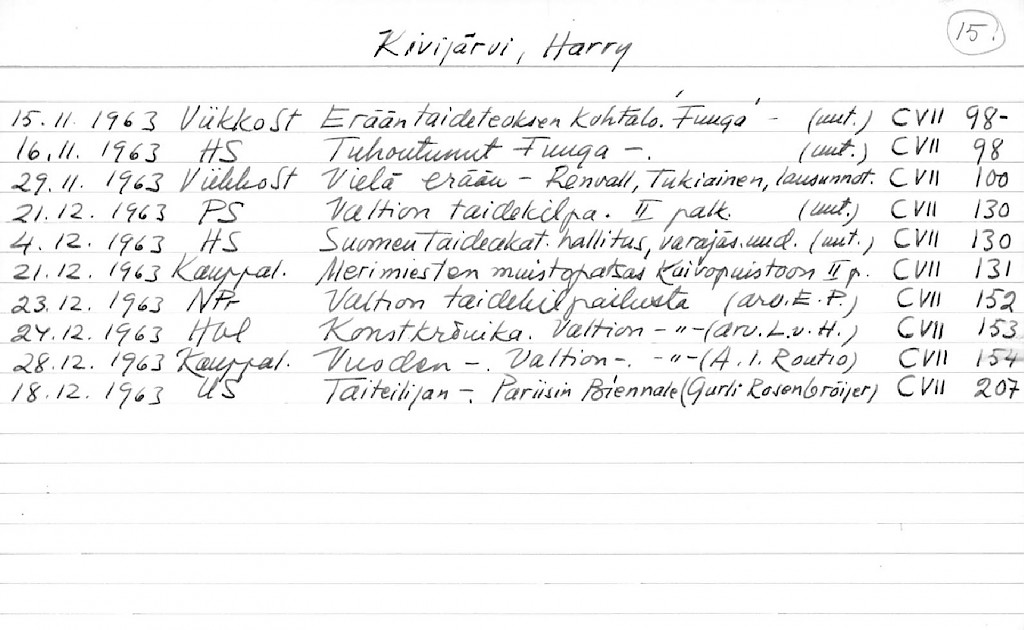 15.
Kivijärvi, Harry
15.11.1963 ViikkoSt Erään taideteoksen kohtalo. 'Fuuga' - (uut.) CVII 98-
16.11.1963 HS Tuhoutunut Fuuga -. (uut.) CVII 98
29.11.1963 ViikkoSt Vielä erään - Renvall, Tukiainen, lausunnot. CVII 100
21.12.1963 PS Valtion taidekilpa. II palk. (uut.) CVII 130
4.12.1963 HS Suomen Taideakat. hallitus, varajäs. uud. (uut.) CVII 130
21.12.1963 Kauppal. Merimiesten muistopatsas Kaivopuistoon II p. CVII 131
23.12.1963 NPr Valtion taidekilpailusta (arv. E.P.) CVII 152
24.12.1963 Hbl Konstkrönika. Valtion -"- (arv. L.v.H.) CVII 153
28.12.1963 Kauppal. Vuoden -. Valtion -. -"- (A.I. Routio) CVII 154
18.12.1963 US Taiteilijan -. Pariisin Biennale (Gurli Rosenbröijer) CVII 207